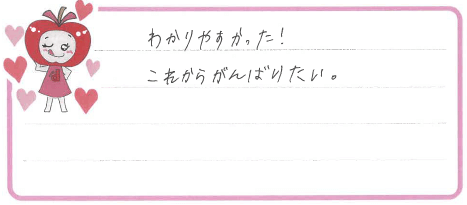 わかりやすかった!
これからがんばりたい。